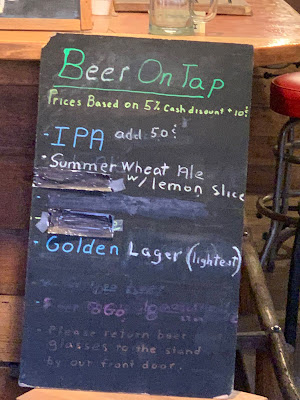 Beer On Tap
Prices Based on 5% Cash discount + 10¢
- IPA add 50¢
- Summer Wheat Ale
w/ lemon slice
- Golden Lager (lightest)
- Please return beer
glasses to the stand
by our front door.